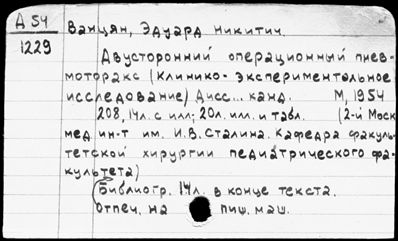 Д 54
1229
Ванцян, Эдуард Никитич.
Двусторонний операционный пнев-
моторакс (Клинико-экспериментальное
исследование) Дисс... канд. М, 1954
208, 14л. с илл; 20л. илл. и табл. (2-й Моск
мед. ин-т им. И.В. Сталина. Кафедра факуль-
тетской хирургии педиатрического фа-
культета)
Библиогр. 14л. в конце текста.
Отпеч. на пиш. маш.